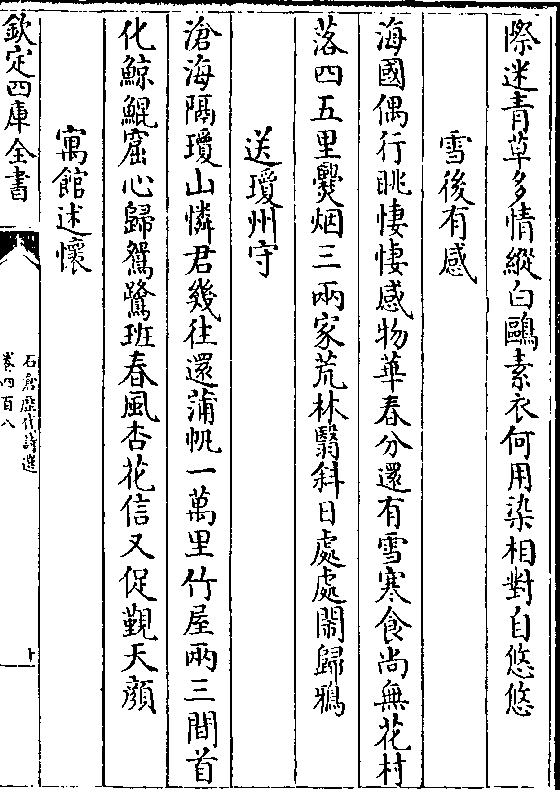 際迷青草多情縱白鷗素衣何用染相對自悠悠
雪後有感
海國偶行眺悽悽感物華春分還有雪寒食尚無花村
落四五里爨烟三兩家荒林翳斜日處處鬧歸鴉
送瓊州守
滄海隔瓊山憐君幾往還蒲帆一萬里竹屋兩三間首
化鯨鯤窟心歸鴛鷺班春風杏花信又促覲天顔
寓館述懷
欽定四庫全書
石倉歴代詩選
卷四百八